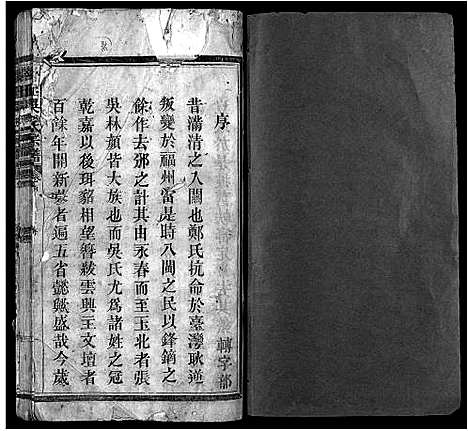 序
昔滿清之入關也鄭氏抗命於臺灣耿逆
叛變於福州當是時八閩之民以鋒鏑之
餘作去鄉之計其由永春而至玉北者張
吳林顏皆大族也而吳氏尤爲諸姓之冠
乾嘉以後珥貂相望善薮雲興主文壇者
百餘年開新蒙者遍五省懿歟盛哉今歲
轉字部